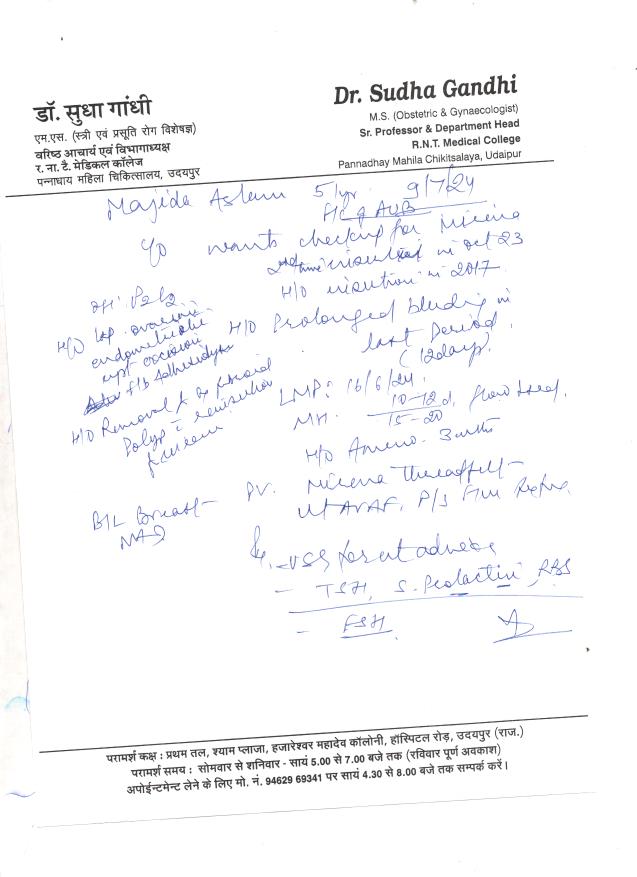 डॉ. सुधा गांधी
एम.एस. (स्त्री एवं प्रसूति रोग विशेषज्ञ)
वरिष्ठ आचार्य एवं विभागाध्यक्ष
र. ना. टै. मेडिकल कॉलेज
पन्नाधाय महिला चिकित्सालय, उदयपुर
Dr. Sudha Gandhi
M.S. (Obstetric & Gynaecologist)
Sr. Professor & Department Head
R.N.T. Medical College
Pannadhay Mahila Chikitsalaya, Udaipur
Majida Aslam 9/7/24
F/C of AUB
wants checking for Mirena
2nd time inserted in oct 23
H/O insertion in 2017
OH: P2L2
H/O Lap. ovarian
endometriotic
cyst excision
f/b Adhesiolysis
H/O Removal of
Polyp reinsertion
H/O Prolonged bleeding in
last Period
(12days).
LMP: 16/6/24.
MH. 10-12d, flow
15-20
H/O Ameno.
P.V. Mirena Thread felt
Ut AVAF, P/S
B/L Breast
NAD
- USG for ut adnexa
- TSH, S. Prolactin, RBS
- FSH
परामर्श कक्ष : प्रथम तल, श्याम प्लाजा, हजारेश्वर महादेव कॉलोनी, हॉस्पिटल रोड़, उदयपुर (राज.)
परामर्श समय : सोमवार से शनिवार - सायं 5.00 से 7.00 बजे तक (रविवार पूर्ण अवकाश)
अपोईन्टमेन्ट लेने के लिए मो. नं. 94629 69341 पर सायं 4.30 से 8.00 बजे तक सम्पर्क करें।